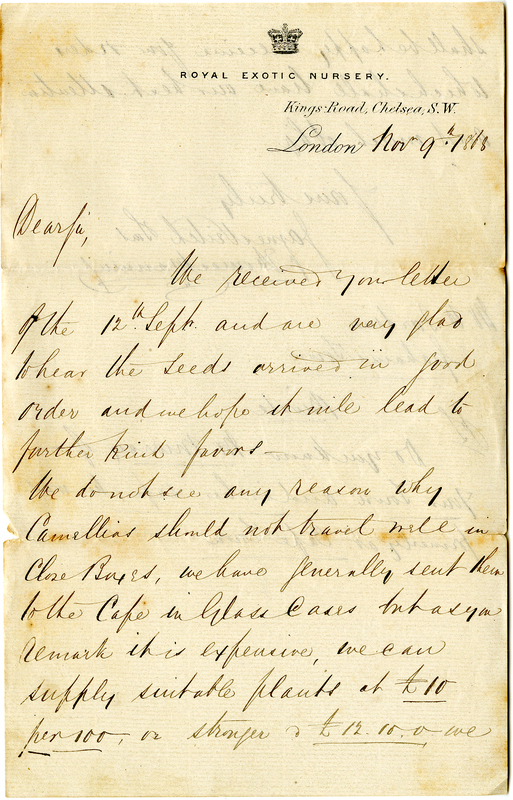 ROYAL EXOTIC NURSERY.
Kings Road, Chelsea, S.W.
London Nov 9th 1868
Dear Sir,
We received your letter
of the 12th Sept. and are very glad
to hear the seeds arrived in good
order and we hope it will lead to
further kind favors—
We do not see any reason why
Camellias should not travel well in
Close Boxes, we have generally sent them
to the Cape in Glass Cases but as you
remark it is expensive, we can
supply suitable plants at £10
per 100, or stronger @ £12.10.0 we